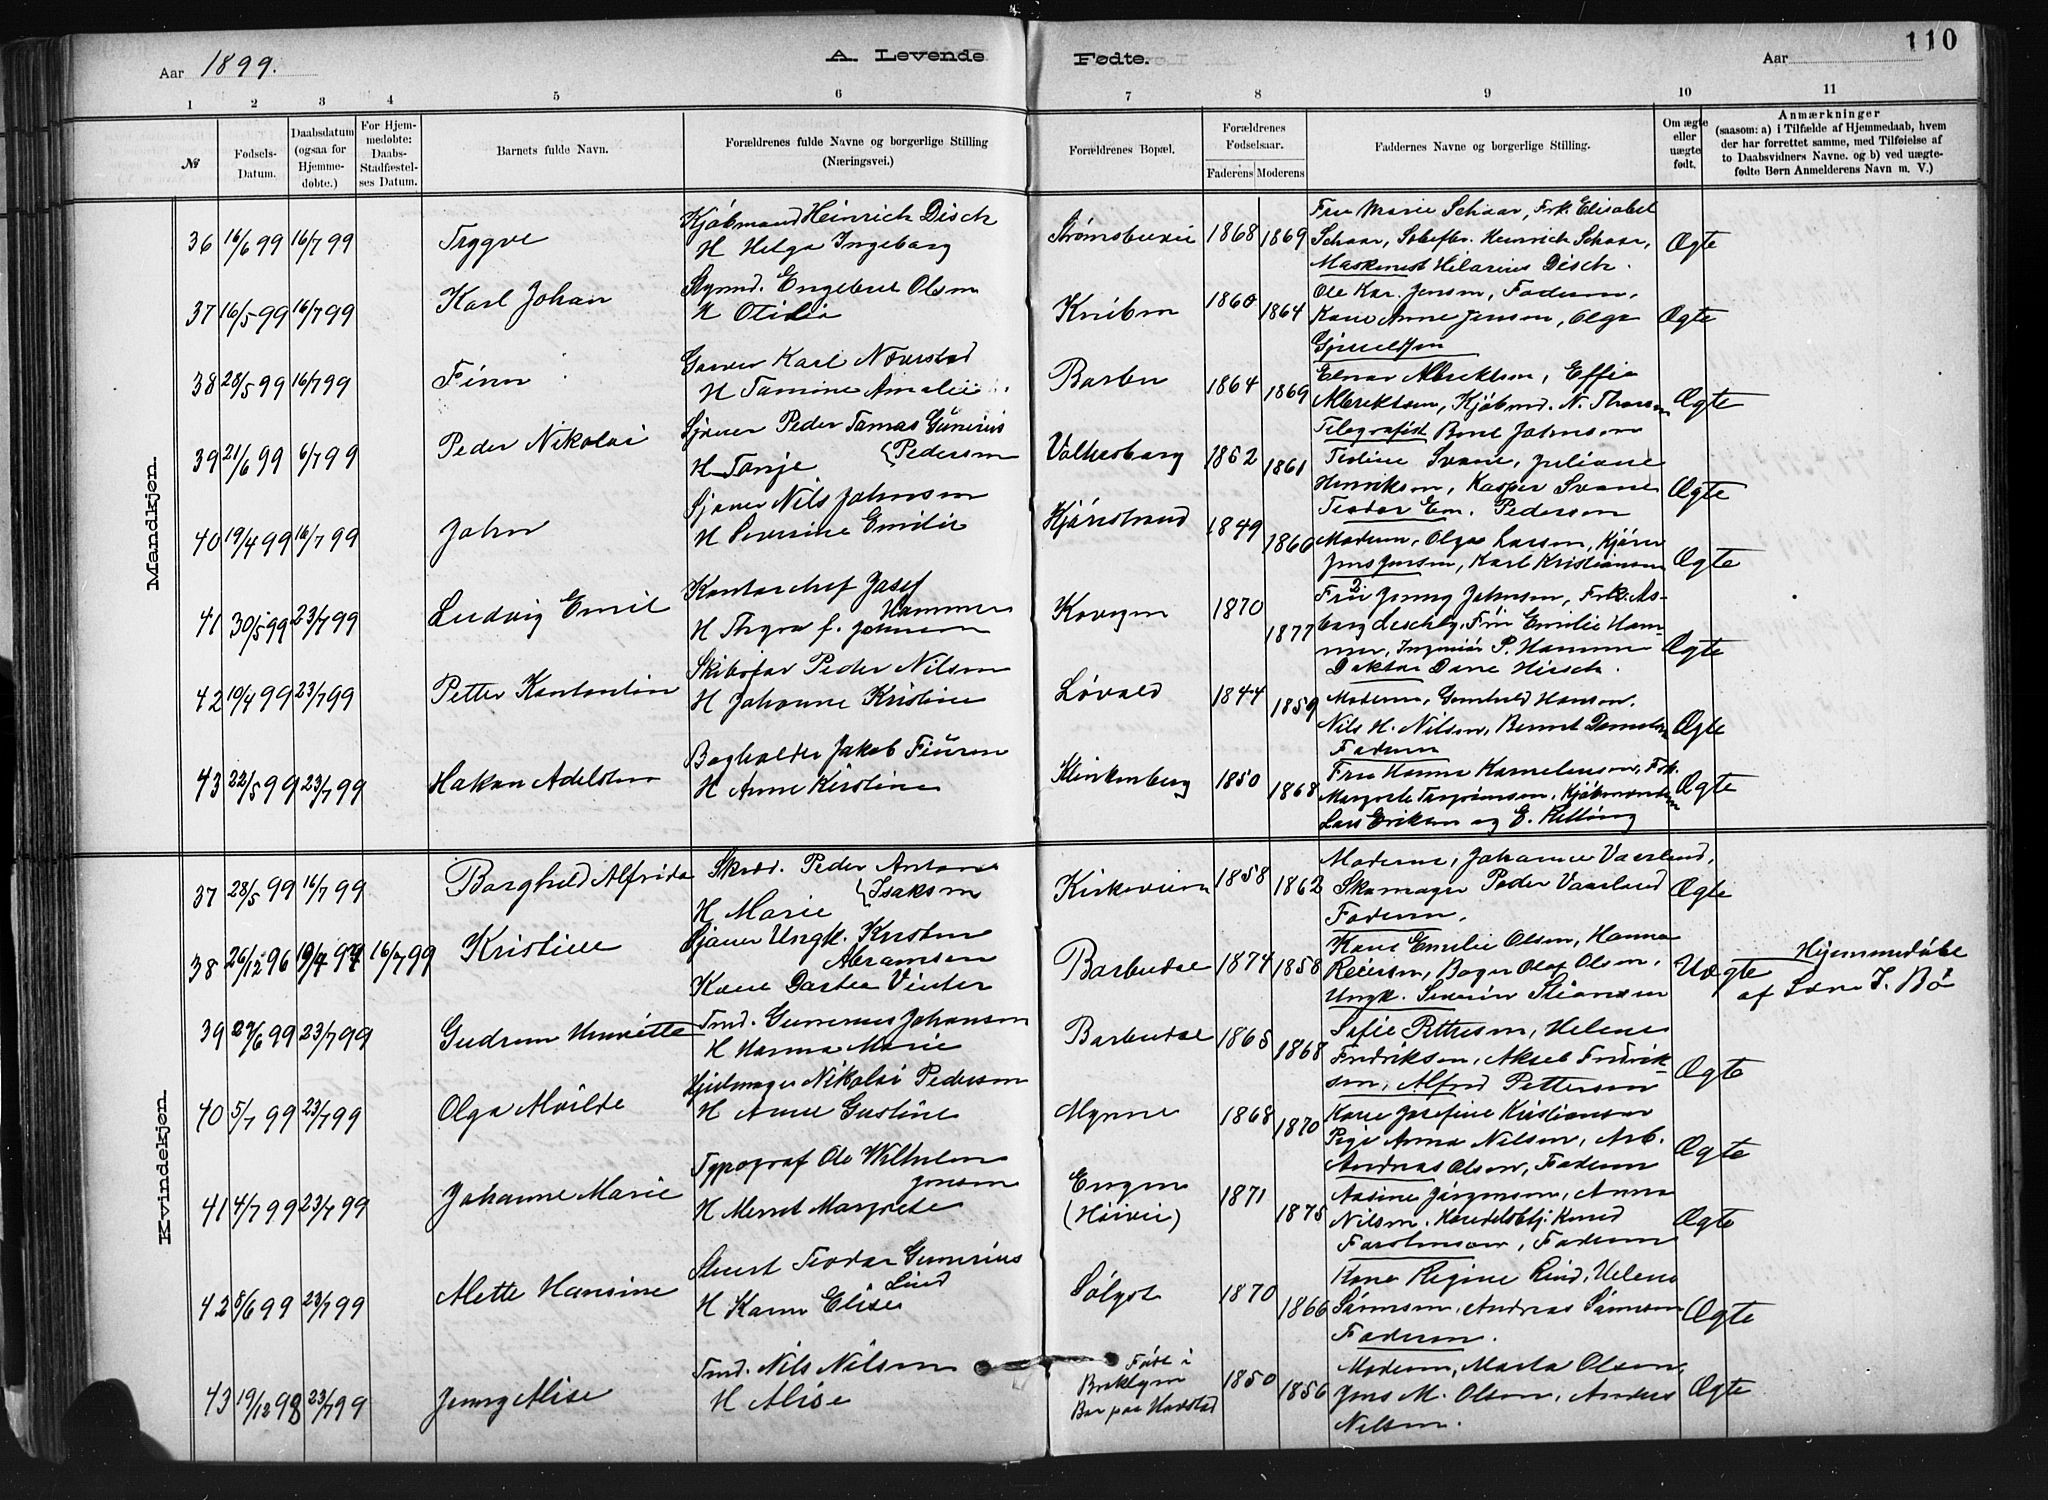 Aar 1899.
A. Levende Fødte.
Aar
110
1 2 3 4 5 6 7 8 9 10 11
№
Fødsels-Datum.
Daabsdatum (ogsaa for Hjemmedøbte.)
For Hjemmedøbte: Daabs-Stadfæstelses Datum.
Barnets fulde Navn.
Forældrenes fulde Navne og borgerlige Stilling (Næringsvei.)
Forældrenes Bopæl.
Forældrenes Fødselsaar.
Faderens Moderens
Faddernes Navne og borgerlige Stilling.
Om ægte eller uægte født.
Anmærkninger (saasom: a) i Tilfælde af Hjemmedaab, hvem der har forrettet samme, med Tilføielse af to Daabsvidners Navne. og b) ved uægtefødte Børn Anmelderens Navn m. V.)
Mandkjøn.
36 16/6 99 16/7 99 Trygve
Kjøbmand Heinrich Disch
H Helga Ingeborg
1868 1869
Fru Marie Schaar, Frk. Elisabet
Schaar, Heinrich Schaar,
Maskinist Hilarius Disch.
Ægte
37 16/5 99 16/7 99 Karl Johan
Engebret Olsen
H Otilie
1860 1864
Ole Kar. Jensen, Faderen,
Kone Anne Jensen, Olga
Ægte
38 28/5 99 16/7 99 Finn
Karl Næverstad
H Tamine Amalie
Barbu 1864 1869
Einar Albrektsen, Effie
Albrektsen, Kjøbmd. N. Thorsen
Telegrafist Bent Johnsen
Ægte
39 21/6 99 6/7 99 Peder Nikolai
Sjøman Peder Tomas Gunerius
Pedersen
H Tonje
1861
Svane, Juliane
Henriksen, Kasper Svane
Teodor Em. Pedersen
Ægte
40 19/4 99 16/7 99 John
Nils Johnsen
H Severine Emilie
1849 1866
Moderen, Olga Larsen,
Jens Jensen, Karl Kristiansen
Ægte
41 30/5 99 23/7 99 Ludvig Emil
Kontorchef Josef
Hammer
H Thyra f. Johnsen
1870 1877
Fru Jenny Johnsen, Frk. As-
Fru Emilie Ham-
mer, Ingeniør P. Hammer
Doktor Hirsch.
Ægte
42 10/4 99 23/7 99 Petter Konstantin
Peder Nilsen
H Johanne Kristine
Løvold 1844 1859
Moderen, Gunhild Hansen.
Nils H. Nilsen, Bernt
Faderen
Ægte
43 22/5 99 23/7 99 Hakon Adelsten
Bogholder Jakob
H Anne Kirstine
Klinkenberg 1850 1868
Fru Hanna Kornelinsen, Frk.
Margrete
Lars Eriksen og E.
Ægte
Kvindekjøn.
37 28/5 99 16/7 99 Borghild Alfrida
Skræd. Peder Anton
Isaksen
H Marie
Kirkeveien 1858 1862
Moderen, Johanne Vaarlund,
Skomager Peder Vaarlund
Faderen.
Ægte
38 26/12 96 19/4 97 16/7 99 Kristine
Sjøman Ungk. Kristen
Abramsen
Kone Dortea Vinter
Barbudal 1874 1858
Kone Emilie Olsen, Hanna
Reiersen, Bager Olaf Olsen,
Ungk. Severin
Uægte
Hjemmedøbt
af Lærer J. Bø
39 27/6 99 23/7 99 Gudrun Henriette
Tmd. Gunerius Johansen
H Hanna Marie
Barbudal 1865 1868
Sofie Pettersen, Helene
Fredriksen, Aksel Fredrik-
sen, Alfred Pettersen
Ægte
40 5/7 99 23/7 99 Olga Alvilde
Hjulmager Nikolai Pedersen
H Anne Gustine
Mynne 1868 1870
Kone Josefine Kristiansen
Pige Anna Nilsen, Arb.
Andreas Olsen, Faderen
Ægte
41 4/7 99 23/7 99 Johanne Marie
Typograf Ole Wilhelm
Jensen
H Merret Margrete
Engen
(Høivei)
1871 1875
Aasine Jørgensen, Anna
Nilsen. Handelsbtj. Knud
Torstensen, Faderen
Ægte
42 8/6 99 23/7 99 Alette Hansine
Stuert Teodor Gunerius
Lind
H Karen Elise
1870 1866
Kone Regine Lind, Helene
Sørensen, Andreas Sørensen
Faderen.
Ægte
43 19/12 98 23/7 99 Jenny Alise
Tmd. Nils Nilsen
H Alise
Født i
Broklyn
Bor paa Havstad
1850 1856
Moderen, Marta Olsen,
Jens M. Olsen, Anders
Nilsen.
Ægte